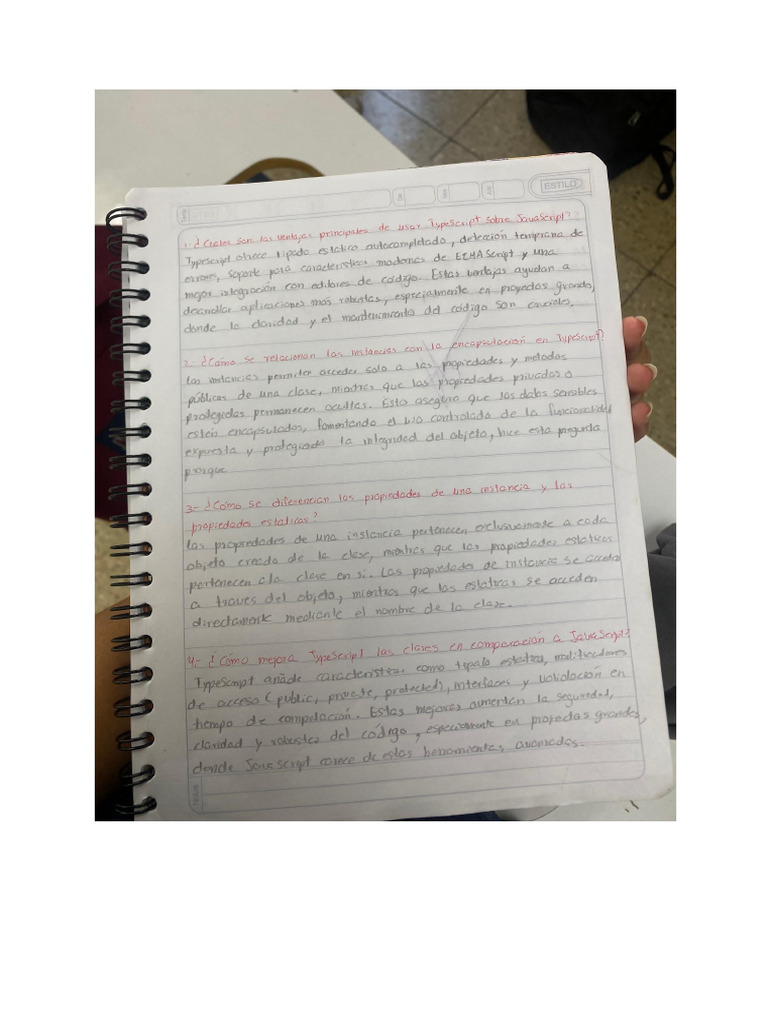 ESTILO
1. ¿Cuales son las ventajas principales de usar TypeScript sobre JavaScript?
TypeScript ofrece tipado estatico autocompletado, detección temprana de
errores, soporte para caracteristicas modernas de ECMAScript y una
mejor integración con editores de codigo. Estas ventajas ayudan a
desarrollar aplicaciones más robustas, especialmente en proyectos grandes,
donde la claridad y el mantenimiento del código son cruciales.
2. ¿Cómo se relacionan las instancias con la encapsulación en TypeScript?
las instancias permiten acceder solo a las propiedades y metodos
públicas de una clase, mientras que las propiedades privadas o
protegidas permanecen ocultas. Esto asegura que los datos sensibles
estén encapsulados, fomentando el uso controlado de la funcionalidad
expuesta y protegiendo la integridad del objeto, hice esta pregunta
porque
3.- ¿Cómo se diferencian las propiedades de una instancia y las
propiedades estaticas?
las propiedades de una instancia pertenecen exclusivamente a cada
objeto creado de la clase, mientras que las propiedades estaticas
pertenecen a la clase en si. Las propiedades de instancia se acceden
a traves del objeto, mientras que las estaticas se acceden
directamente mediante el nombre de la clase.
4.- ¿Cómo mejora TypeScript las clases en comparación a JavaScript?
TypeScript añade caracteristicas como tipado estatico, modificadores
de acceso (public, private, protected), interfaces y validación en
tiempo de compilación. Estas mejoras aumentan la seguridad,
claridad y robustez del código, especialmente en proyectos grandes,
donde JavaScript carece de estas herramientas avanzadas.